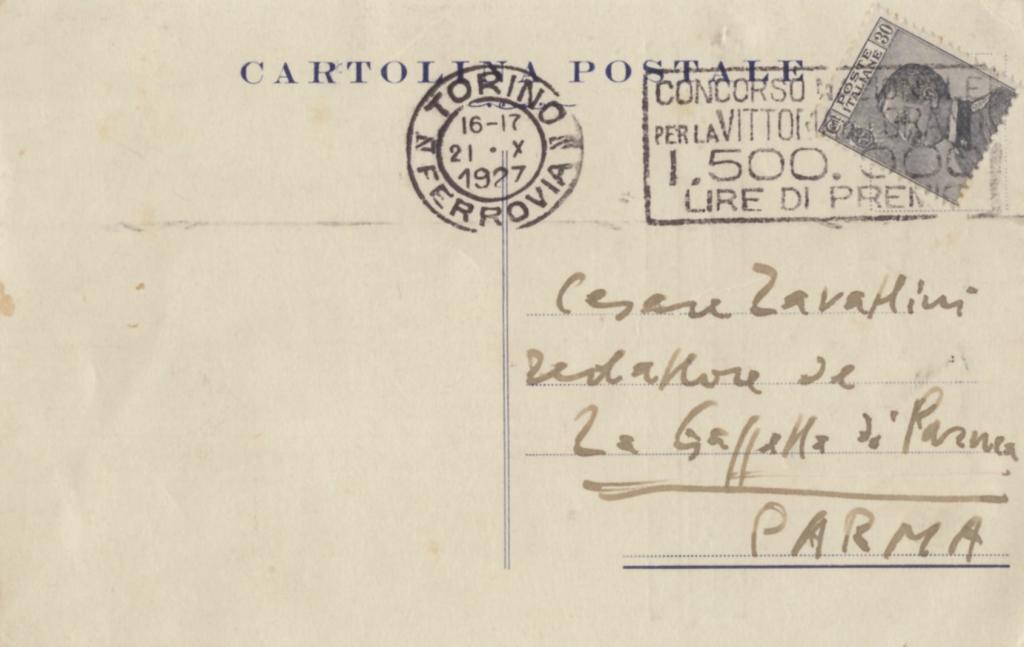 CARTOLINA POSTALE
TORINO
FERROVIA
16-17
21·X
1927
CONCORSO
PER LA VITTORIA
1.500.000
LIRE DI PREMI
POSTE
ITALIANE
30
Cesare Zavattini
redattore de
La Gazzetta di Parma
PARMA